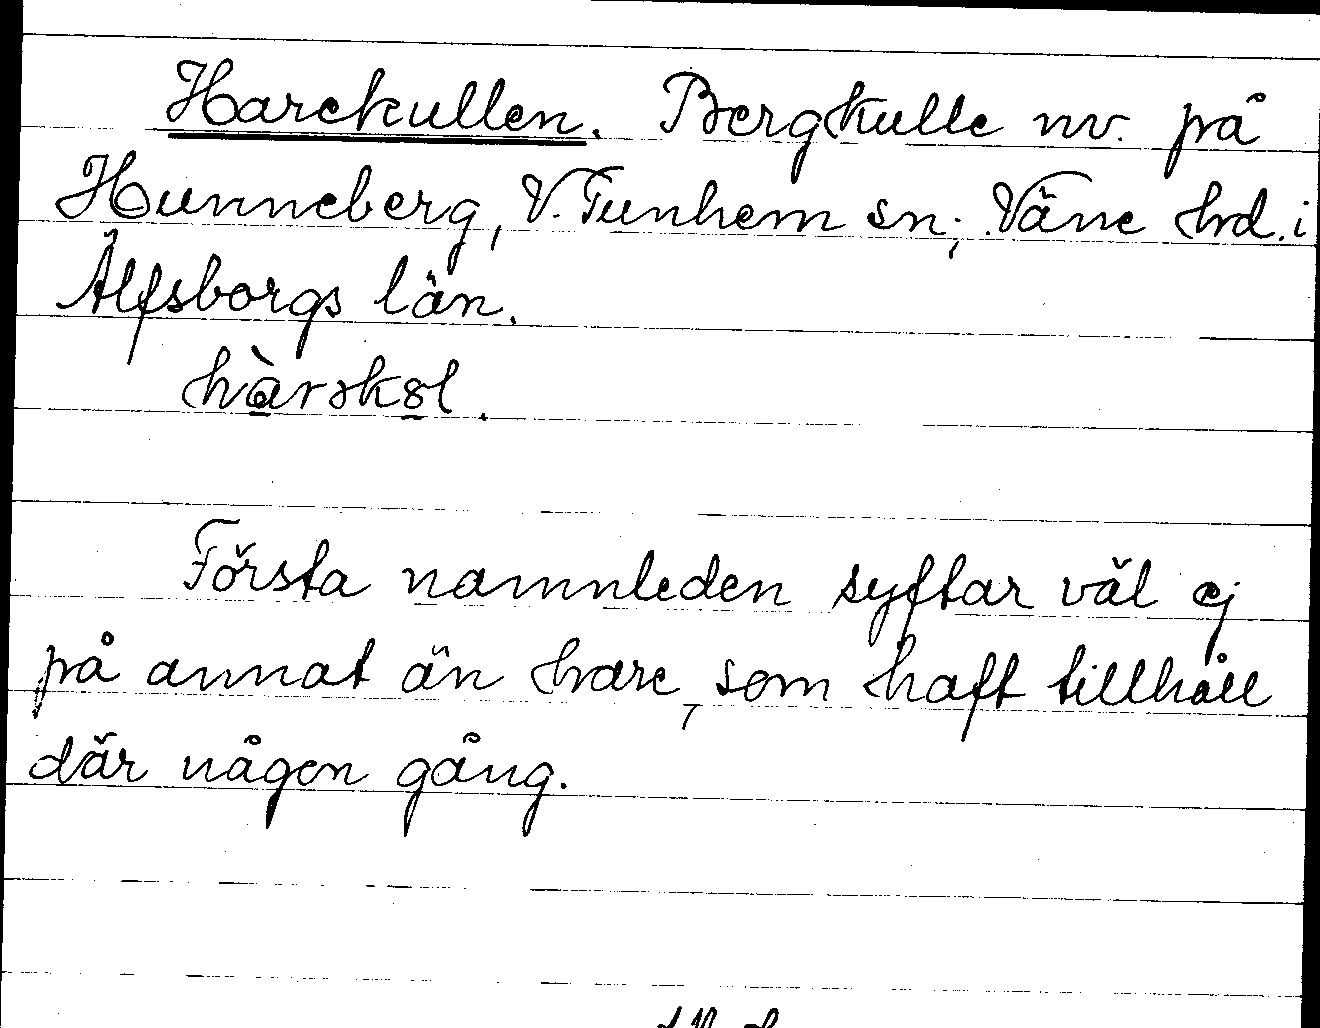 Harekullen. Bergkulle nv. på
Hunneberg, V. Tunhem sn; Väne hrd. i
Älfsborgs län.
Första namnleden syftar väl ej
på annat än hare, som haft tillhåll
där någon gång.